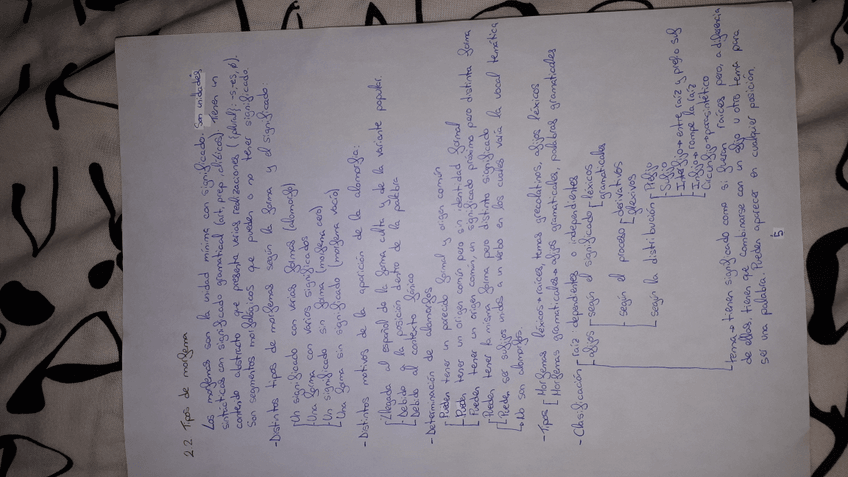 2.2 Tipos de morfema
Los morfemas son la unidad mínima con significado. Son unidades
sintácticas con significado gramatical (art, prep, clíticos) Tienen un
contenido abstracto que presenta varias realizaciones, (plural: -s, -es, ∅).
Son segmentos morfológicos que pueden o no tener significado.
- Distintos tipos de morfemas según la forma y el significado
Un significado con varias formas (alomorfo)
Una forma con varios significados
Un significado sin forma (morfema cero)
Una forma sin significado (morfema vacío)
- Distintos motivos de la aparición de la alomorfia:
del español de la forma culta y de la variante popular.
Debido a la posición dentro de la palabra
Debido al contexto fónico
- Determinación de alomorfos
Pueden tener un parecido formal y origen común
Pueden tener un origen común pero sin identidad formal
Pueden tener un origen común, un significado próximo pero distinta forma
Pueden tener la misma forma, pero distinto significado
Puede ser sufijos unidos a un verbo en los cuales varía la vocal temática
No son alomorfos.
- Tipos Morfemas léxicos → raíces, temas grecolatinos, afijos léxicos
Morfemas gramaticales → afijos gramaticales, palabras gramaticales
- Clasificación raíz dependientes o independientes
afijos - según el significado léxicos
gramaticales
- según el proceso derivativos
flexivos
- según la distribución Prefijo
Sufijo
Interfijo → entre raíz y prefijo o suf
Infijo → rompe la raíz
Circunfijo → parasintético
tema → tienen significado como si fueran raíces pero, a diferencia
de ellas, tienen que combinarse con un afijo u otro tema para
ser una palabra. Pueden aparecer en cualquier posición.
5